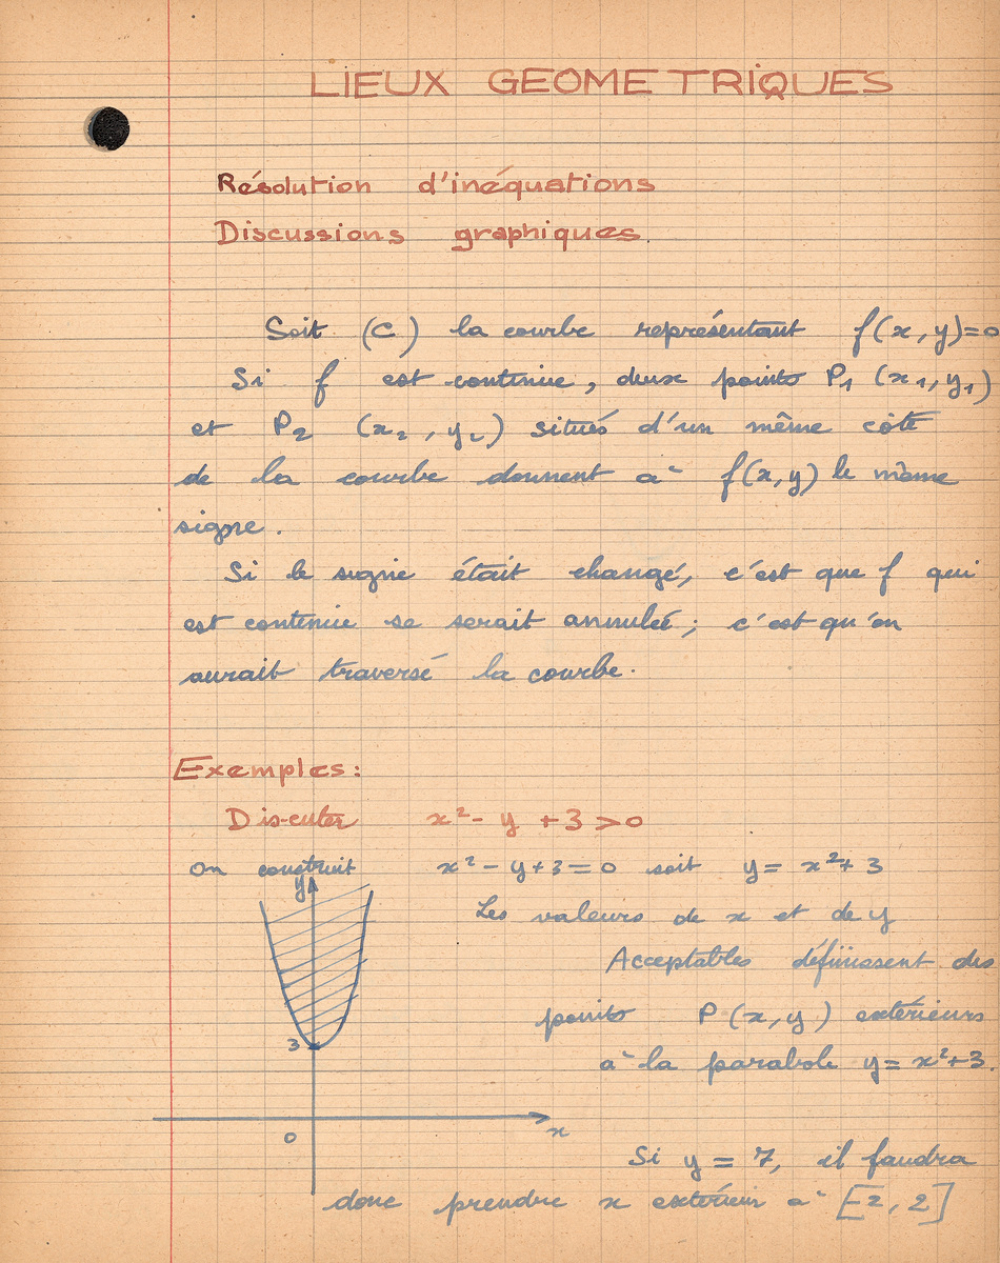 LIEUX GEOMETRIQUES
Résolution d'inéquations
Discussions graphiques.
Soit (C) la courbe représentant f(x,y)=0
Si f est continue, deux points P₁ (x₁,y₁)
et P₂ (x₂,y₂) situés d'un même côté
de la courbe donnent à f(x,y) le même
signe.
Si le signe était changé, c'est que f qui
est continue se serait annulée; c'est qu'on
aurait traversé la courbe.
Exemples:
Discuter x²-y+3>0
On construit x²-y+3=0 soit y=x²+3
y
Les valeurs de x et de y
Acceptables définissent des
points P(x,y) extérieurs
3
à la parabole y=x²+3.
x
0
Si y=7, il faudra
donc prendre x extérieur à [-2,2]